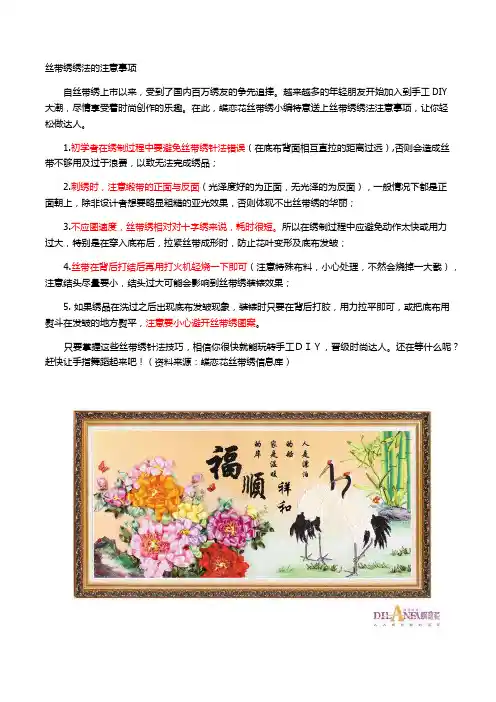 丝带绣绣法的注意事项
自丝带绣上市以来，受到了国内百万绣友的争先追捧。越来越多的年轻朋友开始加入到手工 DIY
大潮，尽情享受着时尚创作的乐趣。在此，蝶恋花丝带绣小编特意送上丝带绣绣法注意事项，让你轻
松做达人。
1.初学者在绣制过程中要避免丝带绣针法错误（在底布背面相互直拉的距离过远）,否则会造成丝
带不够用及过于浪费，以致无法完成绣品；
2.刺绣时，注意缎带的正面与反面（光泽度好的为正面，无光泽的为反面），一般情况下都是正
面朝上，除非设计者想要略显粗糙的亚光效果，否则体现不出丝带绣的华丽；
3.不应图速度，丝带绣相对对十字绣来说，耗时很短。所以在绣制过程中应避免动作太快或用力
过大，特别是在穿入底布后，拉紧丝带成形时，防止花叶变形及底布发皱；
4.丝带在背后打结后再用打火机轻烧一下即可（注意特殊布料，小心处理，不然会烧掉一大截），
注意结头尽量要小，结头过大可能会影响到丝带绣装裱效果；
5. 如果绣品在洗过之后出现底布发皱现象，装裱时只要在背后打胶，用力拉平即可，或把底布用
熨斗在发皱的地方熨平，注意要小心避开丝带绣图案。
只要掌握这些丝带绣针法技巧，相信你很快就能玩转手工ＤＩＹ，晋级时尚达人。还在等什么呢？
赶快让手指舞蹈起来吧！（资料来源：蝶恋花丝带绣信息库）
人是漂泊
的船
家是温暖
的岸
福
顺
祥和